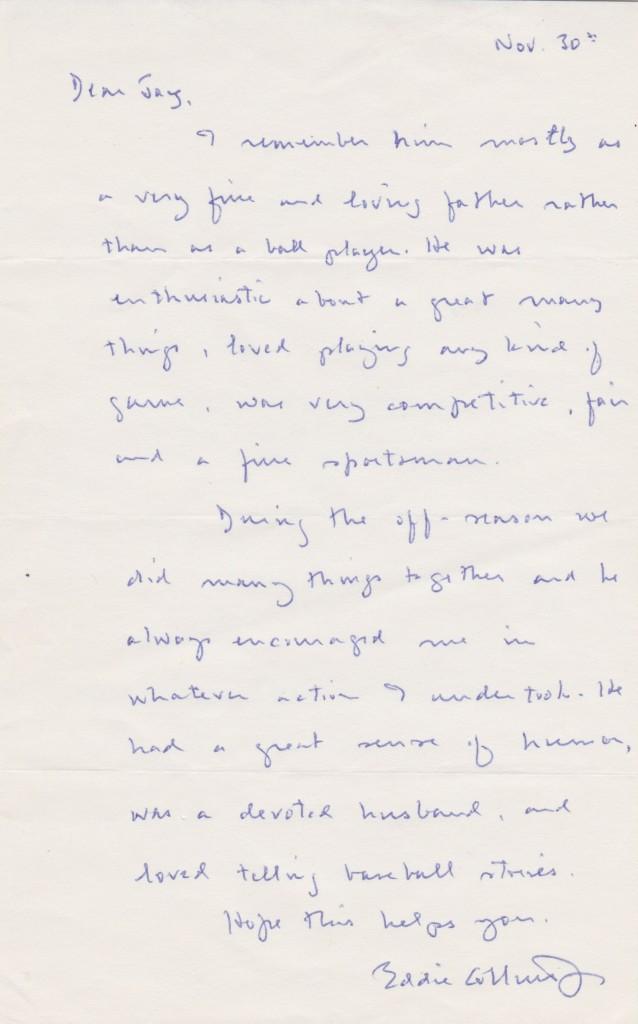 Nov. 30th
Dear Jay,
I remember him mostly as
a very fine and loving father rather
than as a ball player. He was
enthusiastic about a great many
things, loved playing any kind of
game, was very competitive, fair
and a fine sportsman.
During the off-season we
did many things together and he
always encouraged me in
whatever action I undertook. He
had a great sense of humor,
was a devoted husband, and
loved telling baseball stories.
Hope this helps you.
Eddie Collins Jr